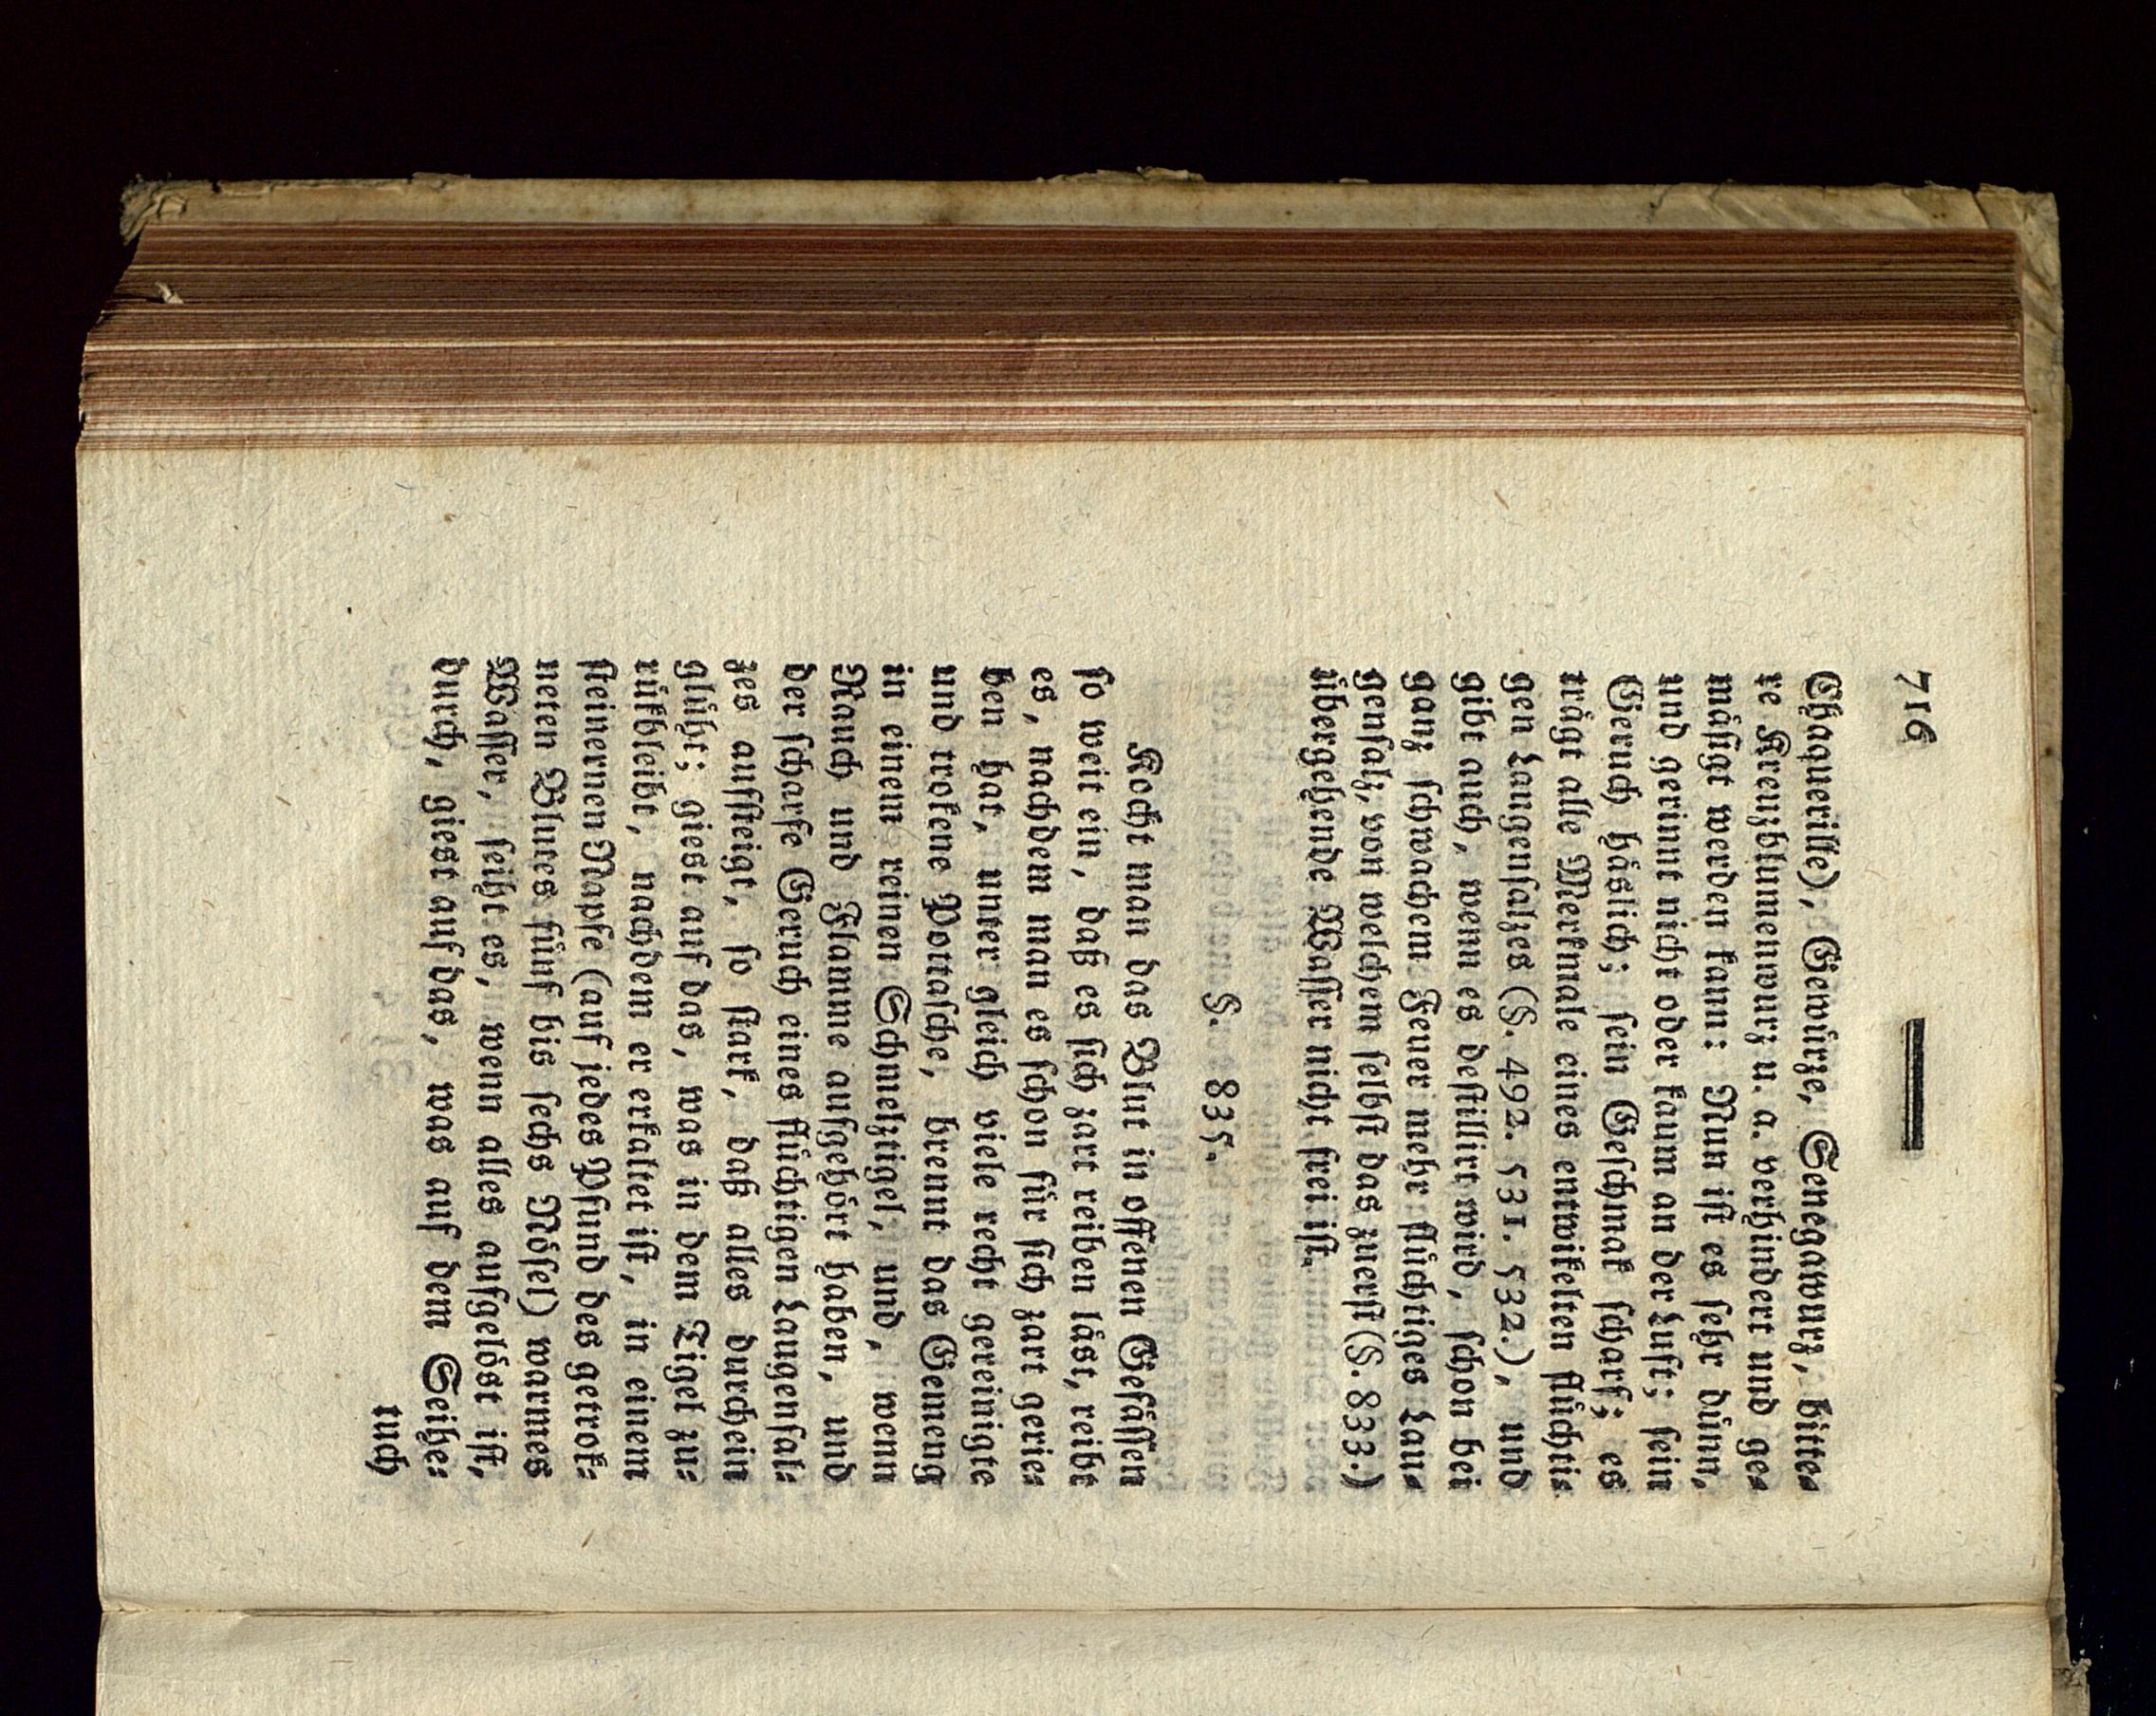 716
Chaquerille), Gewürze, Senegawurz, bitte⸗
re Kreuzblumenwurz u. a. verhindert und ge⸗
mäsigt werden kann: Nun ist es sehr dünn,
und gerinnt nicht oder kaum an der Luft; sein
Geruch häslich; sein Geschmak scharf; es
trägt alle Merkmale eines entwikelten flüchti⸗
gen Laugensalzes (§. 492. 531. 532.), und
gibt auch, wenn es destillirt wird, schon bei
ganz schwachem Feuer mehr flüchtiges Lau⸗
gensalz, von welchem selbst das zuerst (§. 833.)
übergehende Wasser nicht frei ist.
§. 835.
Kocht man das Blut in offenen Gefässen
so weit ein, daß es sich zart reiben läst, reibt
es, nachdem man es schon für sich zart gerie⸗
ben hat, unter gleich viele recht gereinigte
und trokene Pottasche, brennt das Gemeng
in einem reinen Schmelztigel, und, wenn
Rauch und Flamme aufgehört haben, und
der scharfe Geruch eines flüchtigen Laugensal⸗
zes aufsteigt, so stark, daß alles durchein
glüht; giest auf das, was in dem Tigel zu⸗
rükbleibt, nachdem er erkaltet ist, in einem
steinernen Napfe (auf jedes Pfund des getrok⸗
neten Blutes fünf bis sechs Mösel) warmes
Wasser, seiht es, wenn alles aufgelöst ist,
durch, giest auf das, was auf dem Seihe⸗
tuch